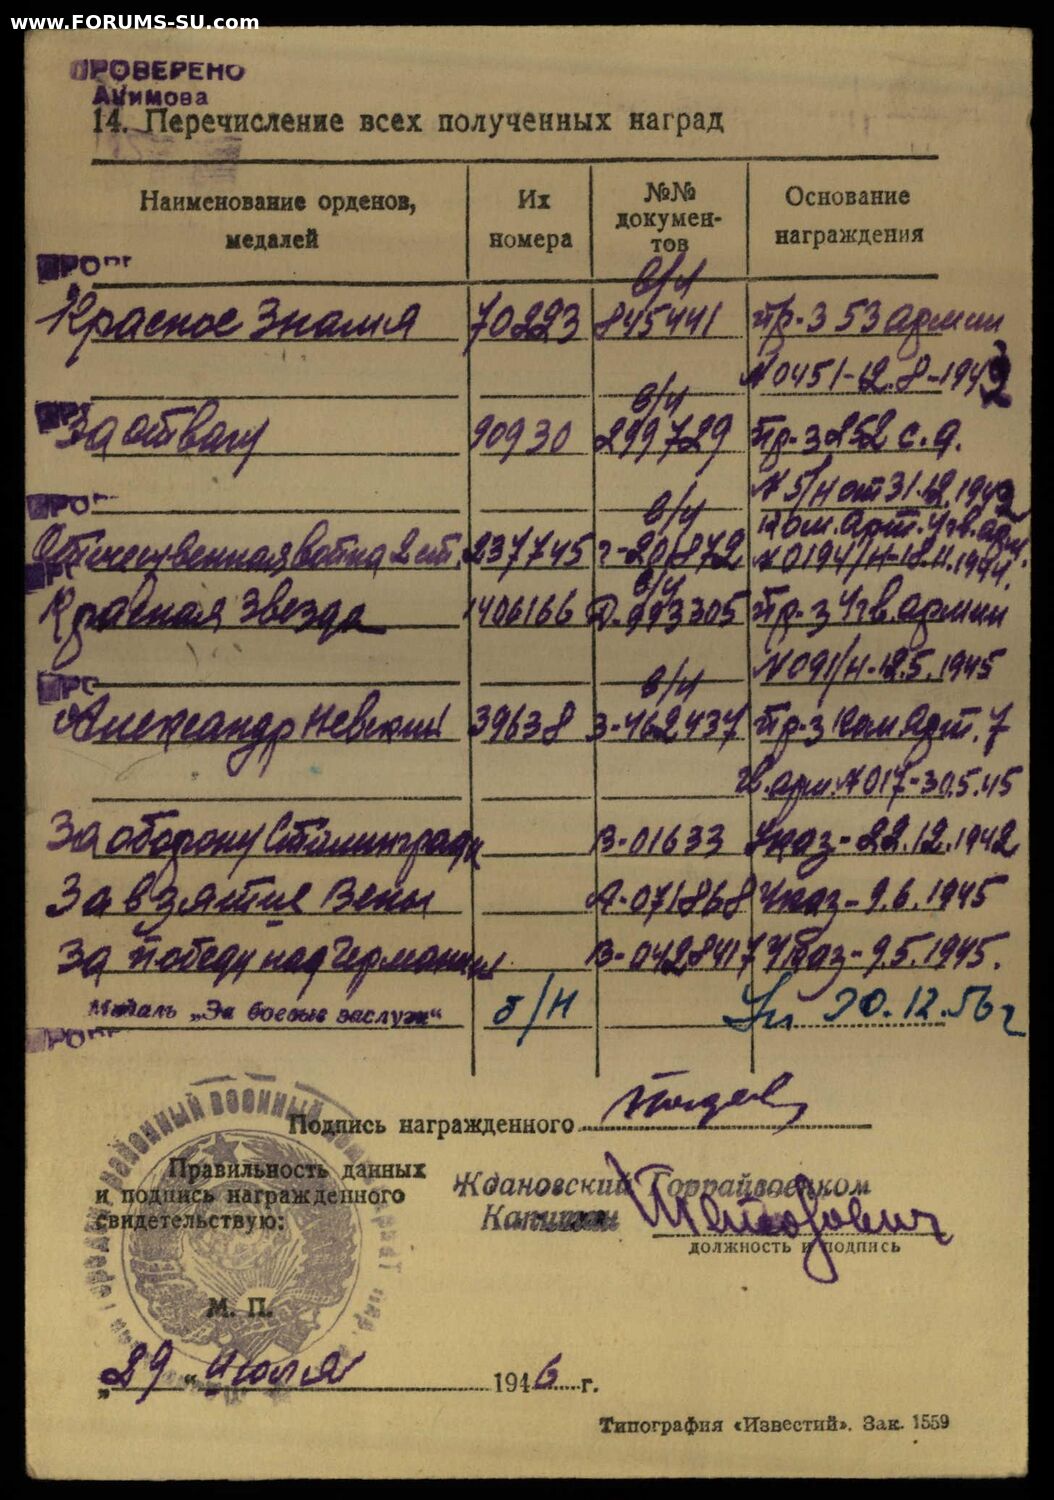 www.FORUMS-SU.com
ПРОВЕРЕНО
Акимова
14. Перечисление всех полученных наград
Наименование орденов, медалей
Их номера
№№ документов
Основание награждения
в/ч
Красное Знамя 70223 845441 пр-з 53 армии
N 0451-12.8-1943
в/ч
За отвагу 90930 299729 Пр-з 252 с.д.
N 5/н от 31.12.1942
в/ч
Ком. арт. 4 гв. арм.
Отечественная война 2 ст. 237745 г-201872 N 0194/н-18.11.1944.
в/ч
Красная Звезда 1406166 Д-993305 Пр-з 4 гв. армии
N 091/н-12.5.1945
в/ч
Александр Невский 39638 З-462437 Пр-з Ком Арт. 7
Гв. арм. N 017-30.5.45
За оборону Сталинграда В-01633 Указ-22.12.1942
За взятие Вены А-071868 Указ-9.6.1945
За победу над Германией В-0428417 Указ-9.5.1945.
Медаль „За боевые заслуги“ б/н 30.12.56 г
Подпись награжденного
Правильность данных
и подпись награжденного
свидетельствую:
Ждановский Горрайвоенком
Капитан
должность и подпись
М. П.
„29“ июля 1946 г.
Типография «Известий». Зак. 1559